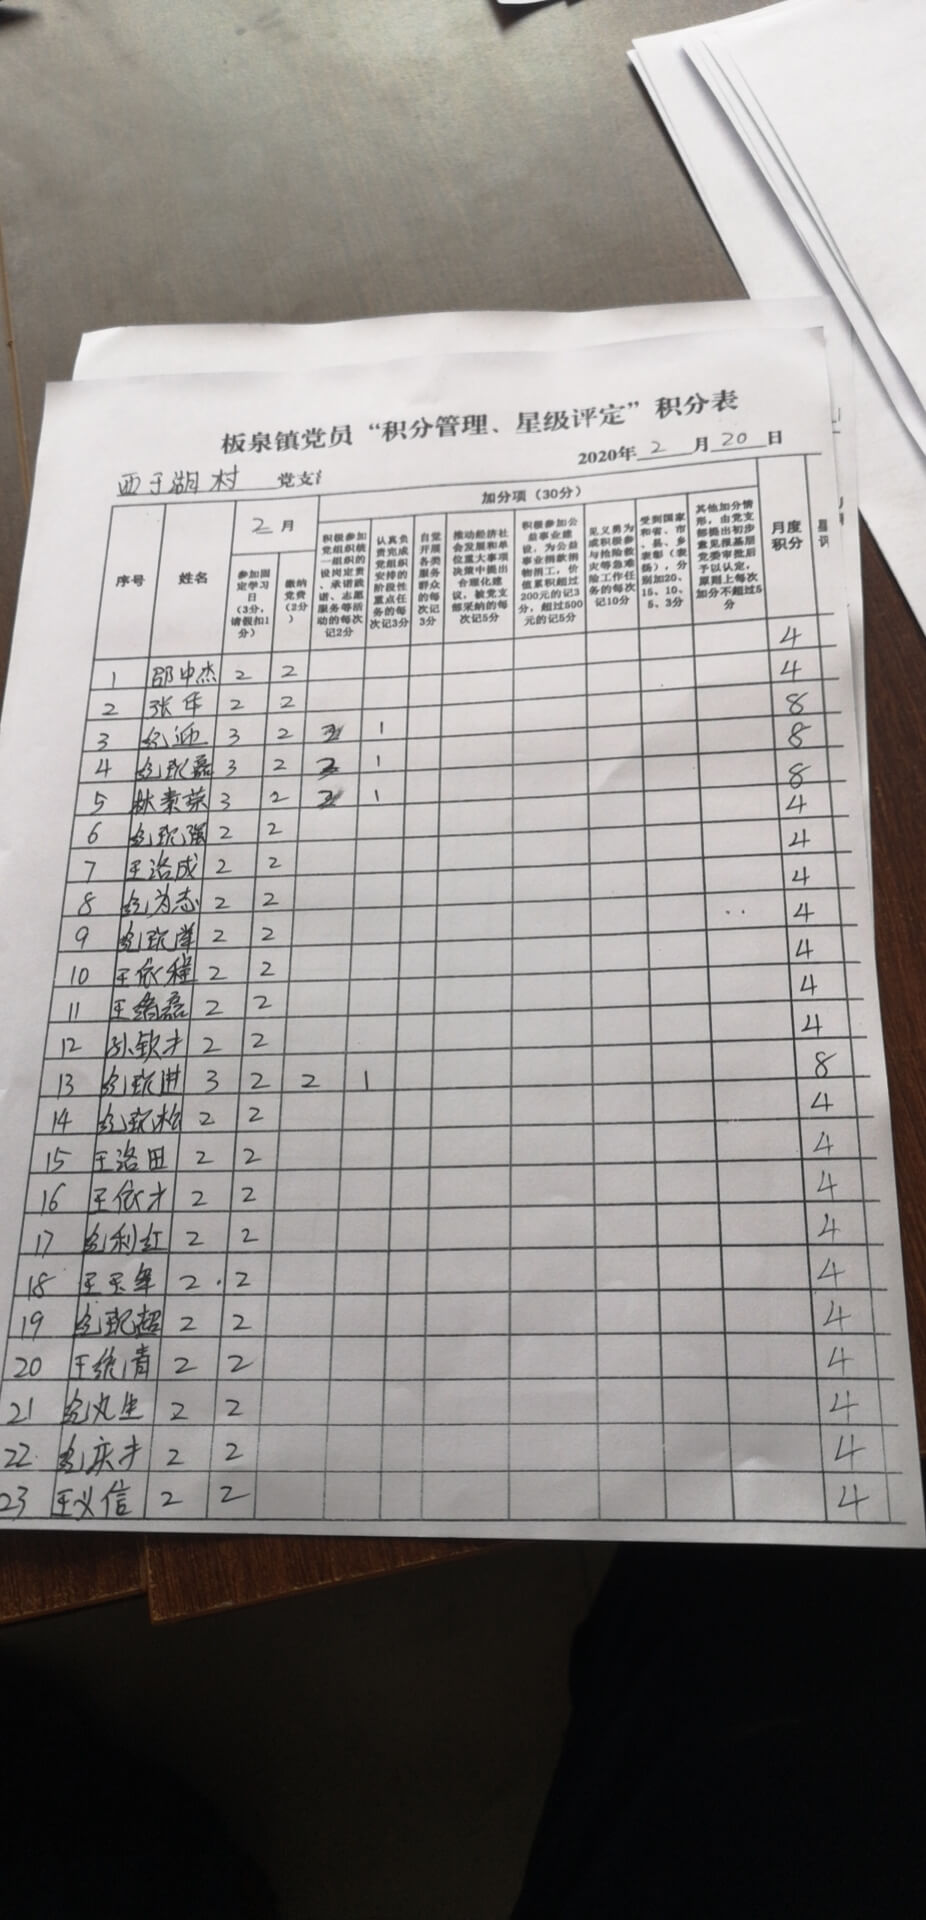 板泉镇党员“积分管理、星级评定”积分表
西于湖村 党支
2020年2月20日
序号 姓名 2月 加分项（30分） 月度积分
参加固定学习日（3分，请假扣1分）
缴纳党费（2分）
积极参加党组织统一组织的设岗定责、承诺践诺、志愿服务等活动的每次记2分
认真负责完成党组织安排的阶段性重点任务的每次记3分
自觉开展各类服务群众的每次记3分
推动经济社会发展和单位重大事项决策中提出合理化建议，被党支部采纳的每次记5分
积极参加公益事业建设，为公益事业捐款捐物捐工，价值累积超过200元的记3分，超过500元的记5分
见义勇为或积极参与抢险救灾等急难险工作任务的每次记10分
受到国家和省、市、县、乡表彰（表扬），分别加20、15、10、5、3分
其他加分情形，由党支部提出初步意见报基层党委审批后予以认定，原则上每次加分不超过5分
1 邵中杰 2 2 4
2 张 2 2 4
3 纪迎 3 2 2 1 8
4 纪现磊 3 2 2 1 8
5 林素荣 3 2 2 1 8
6 纪现强 2 2 4
7 王洛成 2 2 4
8 纪为志 2 2 4
9 纪现 2 2 4
10 王依 2 2 4
11 王绪磊 2 2 4
12 孙钦才 2 2 4
13 纪现进 3 2 2 1 8
14 纪现松 2 2 4
15 王洛田 2 2 4
16 王依才 2 2 4
17 纪利红 2 2 4
18 王玉军 2 2 4
19 纪现超 2 2 4
20 王统清 2 2 4
21 纪 生 2 2 4
22 纪庆才 2 2 4
23 王义信 2 2 4